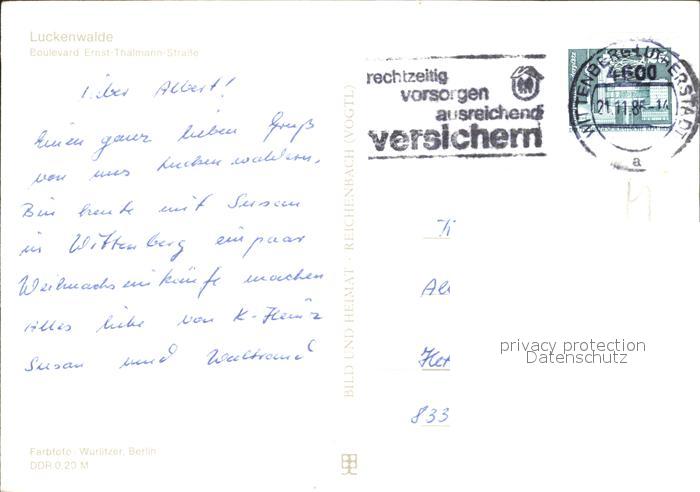 Luckenwalde
Boulevard Ernst-Thälmann-Straße
Lieber Albert!
Einen ganz lieben Gruß
von uns Luckenwaldern.
Bin heute mit Susan
in Wittenberg ein paar
Weihnachseinkäufe machen
Alles liebe von K-Heinz
Susan und Waltraud
Farbfoto: Würlitzer, Berlin
DDR 0,20 M
BILD UND HEIMAT · REICHENBACH (VOGTL)
rechtzeitig
vorsorgen
ausreichend
versichern
WITTENBERG LUTHERSTADT
4600
21.11.85-14
a
Ti
Al
Her
833
privacy protection
Datenschutz